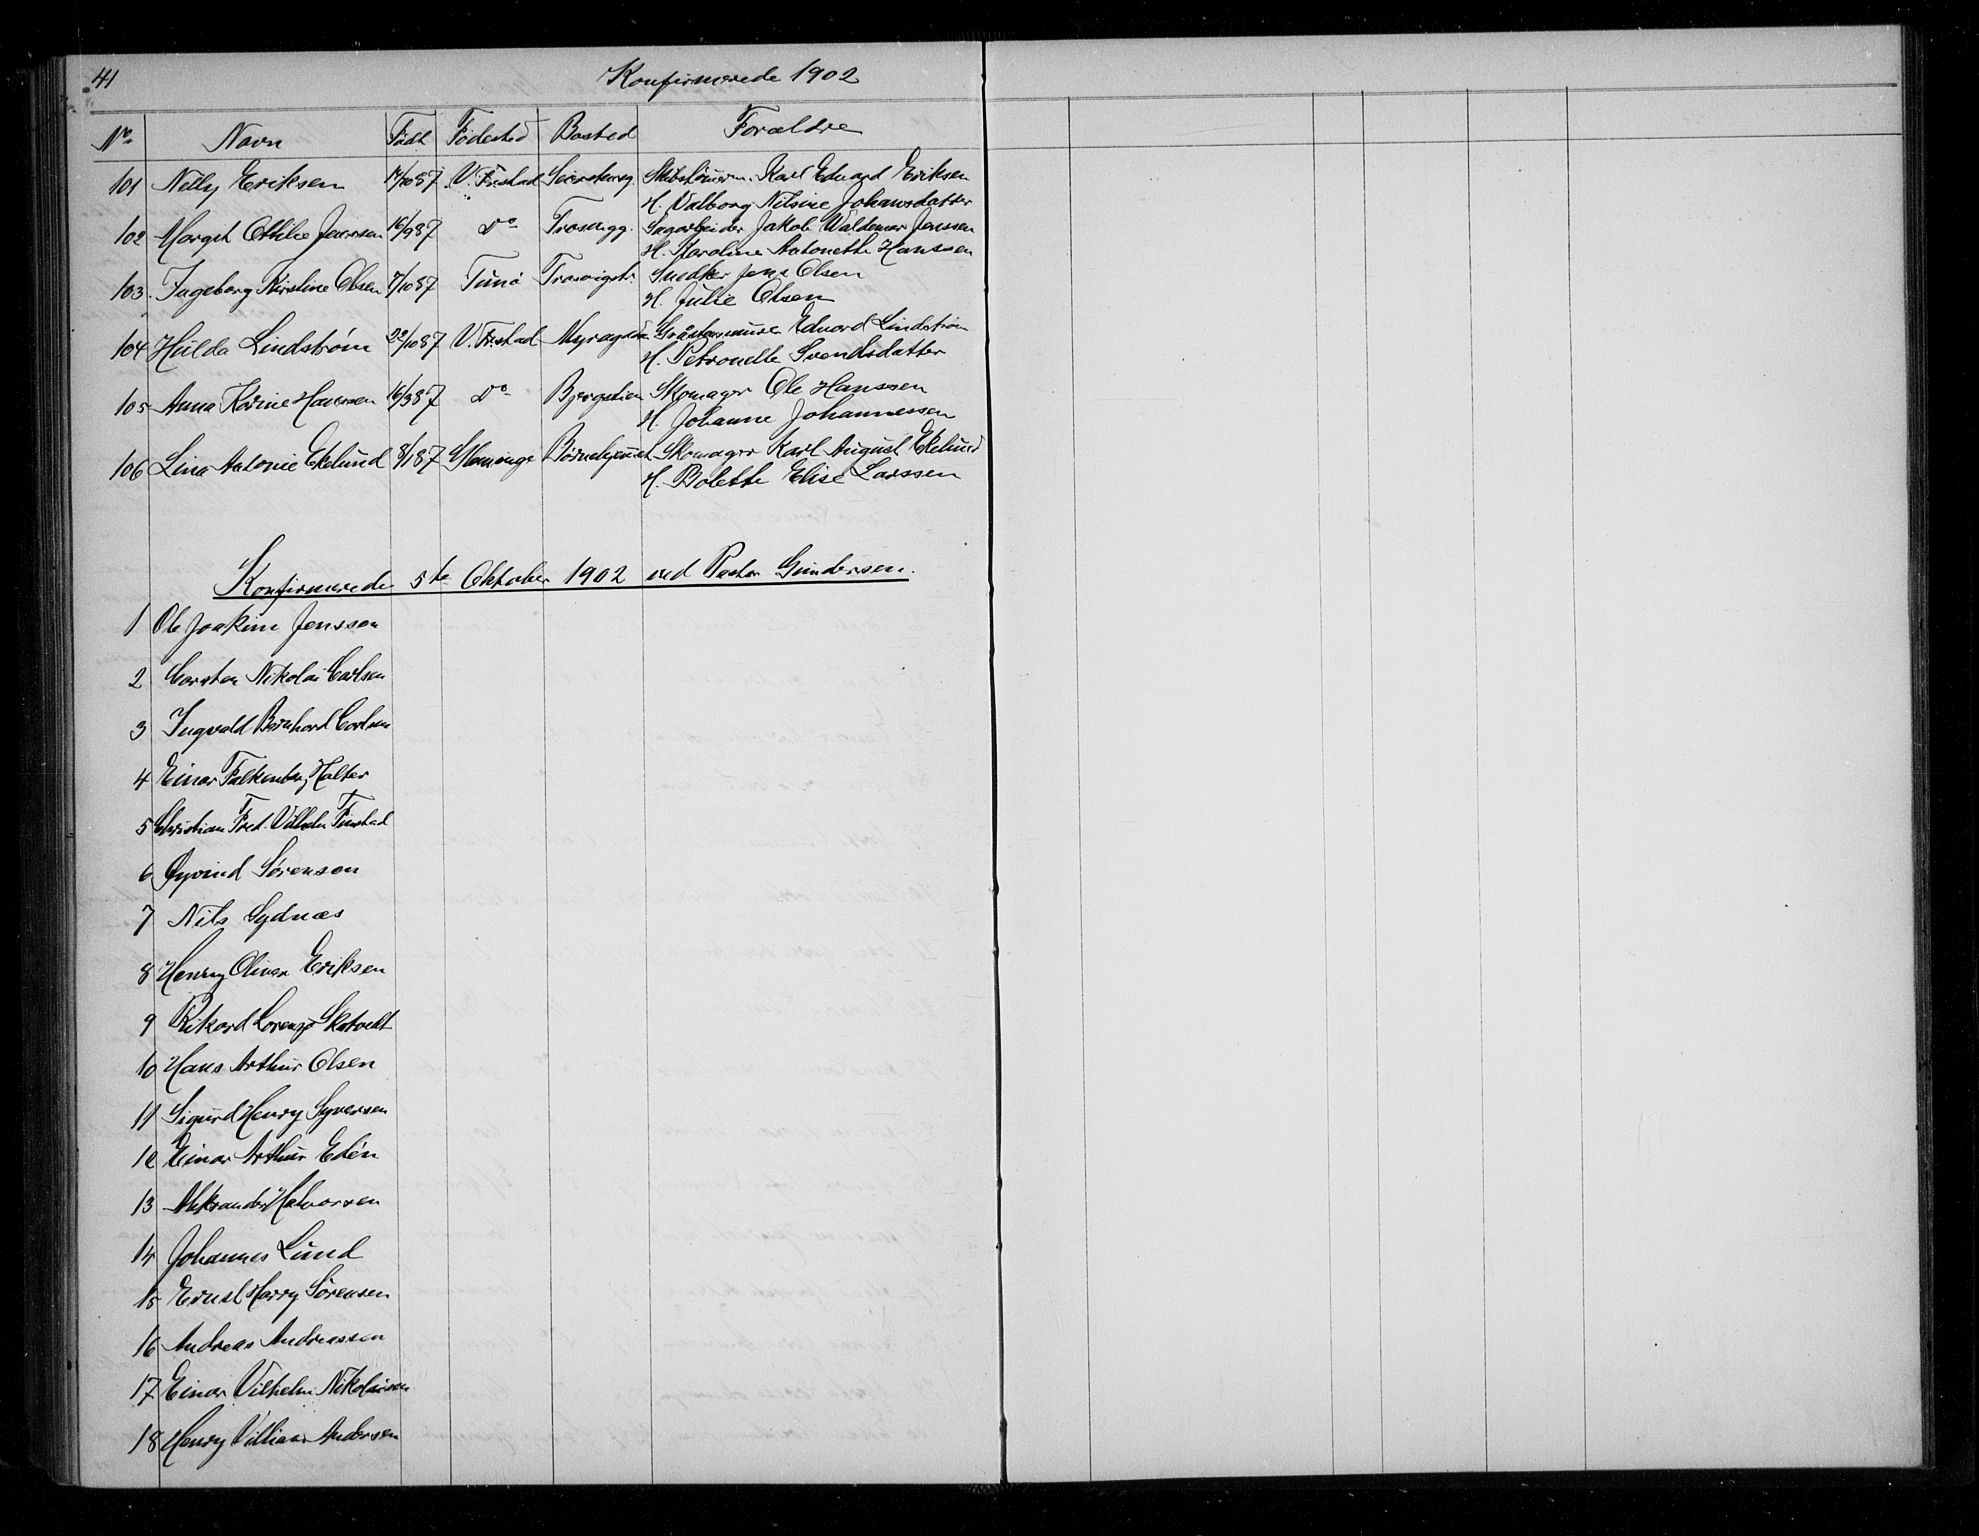 41
Konfirmerede 1902
No Navn Født Fødested Bosted Forældre
101 Nelly Eriksen 14/10 87 V. Fr.stad Karl Eduard Eriksen
H. Valborg Nilsine Johansdatter
102 Margit Othilie Jenssen 16/9 87 do Trosvigg. Sagarbeider Jakob Waldemar Jenssen
H. Karoline Antonette Hanssen
103 Ingeborg Kirstine Olsen 7/10 87 Tunø Trosvigstr. Snedker Jens Olsen
H. Julie Olsen
104 Hulda Lindstrøm 22/10 87 V. Fr.stad Eduard Lindstrøm
H. Petronelle Svendsdatter
105 Anna Karine Hanssen 16/3 87 do Skomager Ole Hanssen
H. Johanne Johannessen
106 Lina Antonie Ekelund 8/1 87 Glemminge Børnehjemmet Skomager Karl August Ekelund
H. Bolette Elise Larssen
Konfirmerede 5te Oktober 1902 ved Pastor Gundersen.
1 Ole Joakim Jenssen
2 Carsten Nikolai Carlsen
3 Ingvald Bernhard Carlsen
4 Einar Falkenberg Holter
5 Christian Fred. Vilhelm Finstad
6 Øyvind Sørensen
7 Nils Sydnæs
8 Henry Oliver Eriksen
9 Rikard Lorenzo Skatvedt
10 Hans Arthur Olsen
11 Sigurd Henry Syversen
12 Einar Arthur Edén
13 Aleksander Halvorsen
14 Johannes Lund
15 Ernst Harry Sørensen
16 Andreas Andreassen
17 Einar Vilhelm Nikolaisen
18 Henry Villiam Andersen